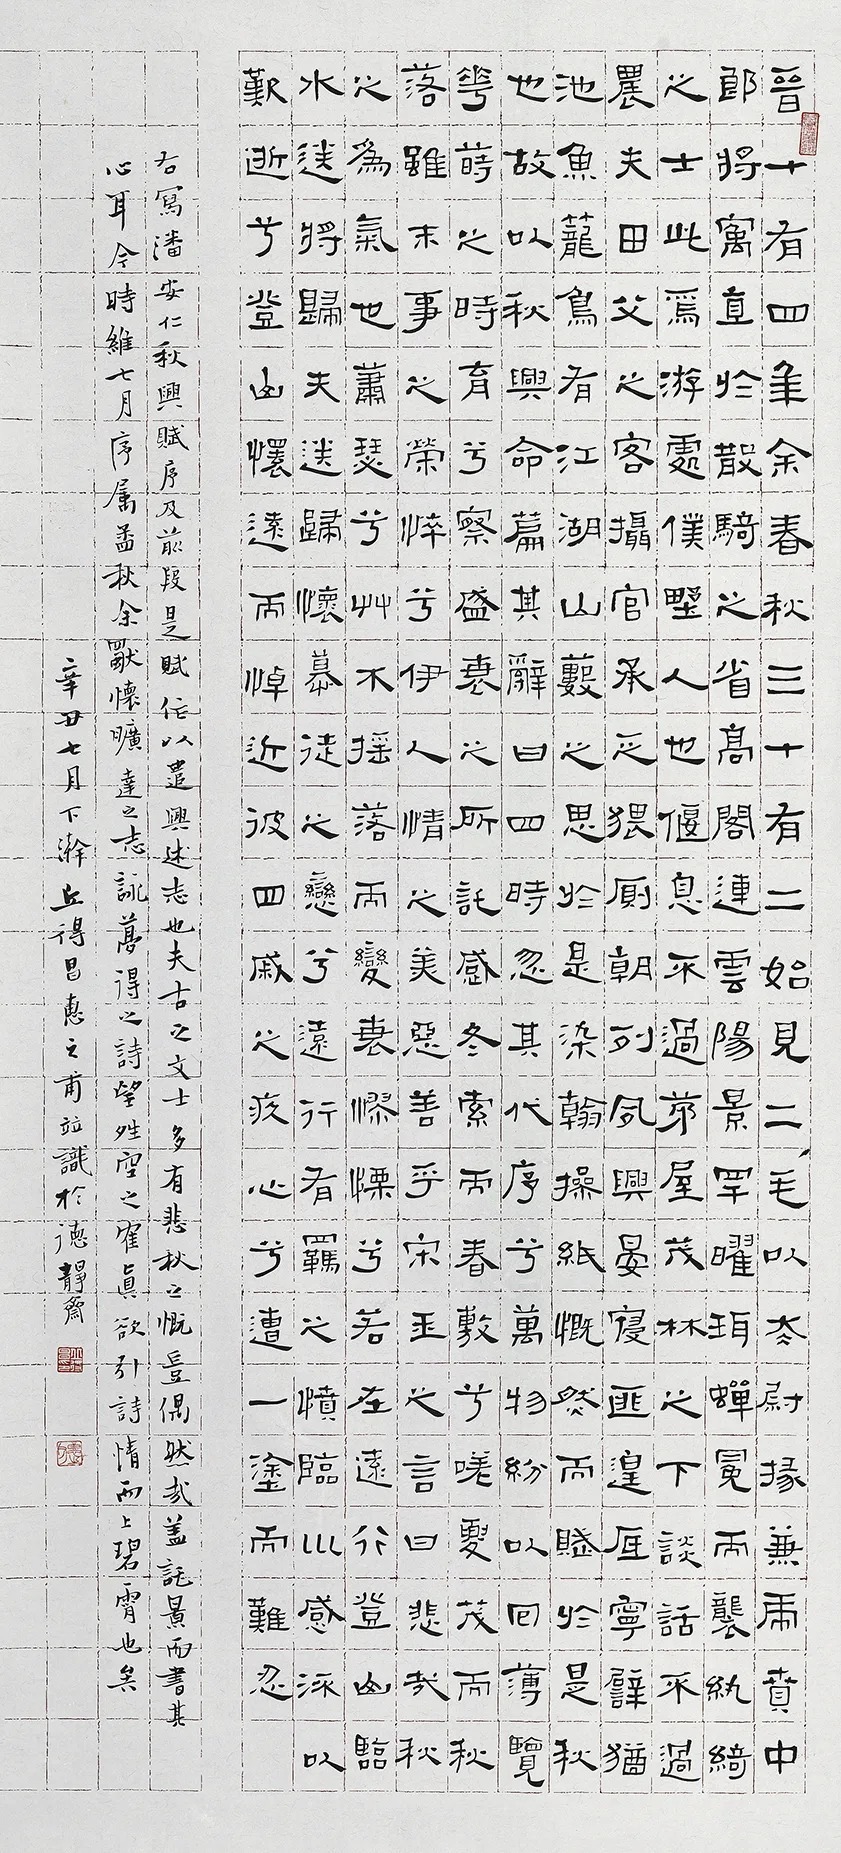 晉十有四年余春秋三十有二始見二毛以太尉掾兼虎賁中
郎將寓直於散騎之省高閣連雲陽景罕曜珥蟬冕而襲紈綺
之士此焉游處僕野人也偃息不過茅屋茂林之下談話不過
農夫田父之客攝官承乏猥廁朝列夙興晏寢匪遑厎寧譬猶
池魚籠鳥有江湖山藪之思於是染翰操紙慨然而賦於是秋
也故以秋興命篇其辭曰四時忽其代序兮萬物紛以回薄覽
華蒔之時育兮察盛衰之所託感冬索而春敷兮嗟夏茂而秋
落雖末事之榮悴兮伊人情之美惡善乎宋玉之言曰悲哉秋
之為氣也蕭瑟兮艸木搖落而變衰憀慄兮若在遠行登山臨
水送將歸夫送歸懷慕徒之戀兮遠行有羈之憤臨川感流以
歎逝兮登山懷遠而悼近彼四戚之疚心兮遭一塗而難忍
右寫潘安仁秋興賦序及前段是賦信以遣興述志也夫古之文士多有悲秋之慨豈偶然哉蓋託景而書其
心耳今時維七月序屬孟秋余獸懷曠達之志詠夢得之詩望姓空之隺真欲引詩情而上碧霄也矣
辛丑七月下澣丘得昌惠之甫並識於德靜齋